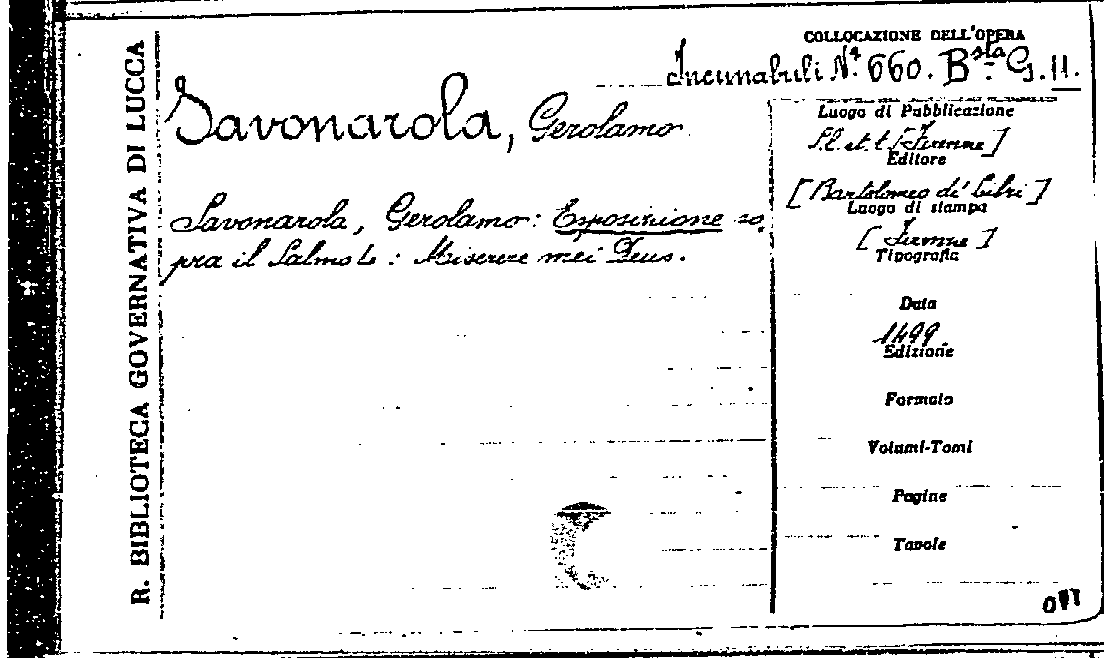 R. BIBLIOTECA GOVERNATIVA DI LUCCA
COLLOCAZIONE DELL'OPERA
Incunabuli N.º 660. Bsta G. 11.
Savonarola, Gerolamo
Savonarola, Gerolamo: Esposizione so,
pra il Salmo L: Miserere mei Deus.
Luogo di Pubblicazione
S.l. et. t. [Firenze]
Editore
[Bartolomeo di' Libri]
Luogo di stampa
[Firenze]
Tipografia
Data
1499
Edizione
Formato
Volumi-Tomi
Pagine
Tavole